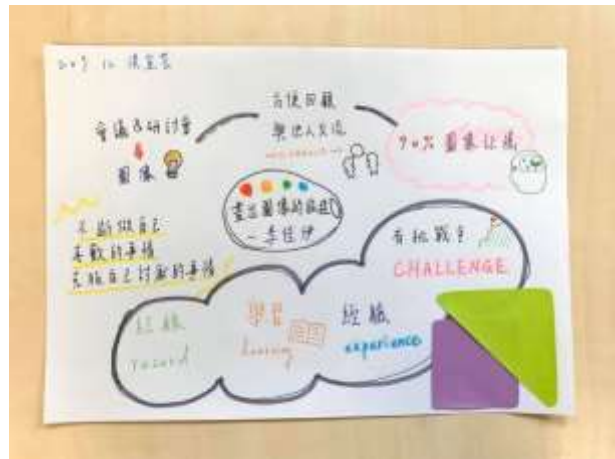 會議&研討會
圖像
方便回顧
與他人交流
90% 圖像記憶
畫出圖像的旅途
不斷做自己
喜歡的事情
克服自己討厭的事情
有挑戰
CHALLENGE
紀錄
record
學習
learning
經驗
experience